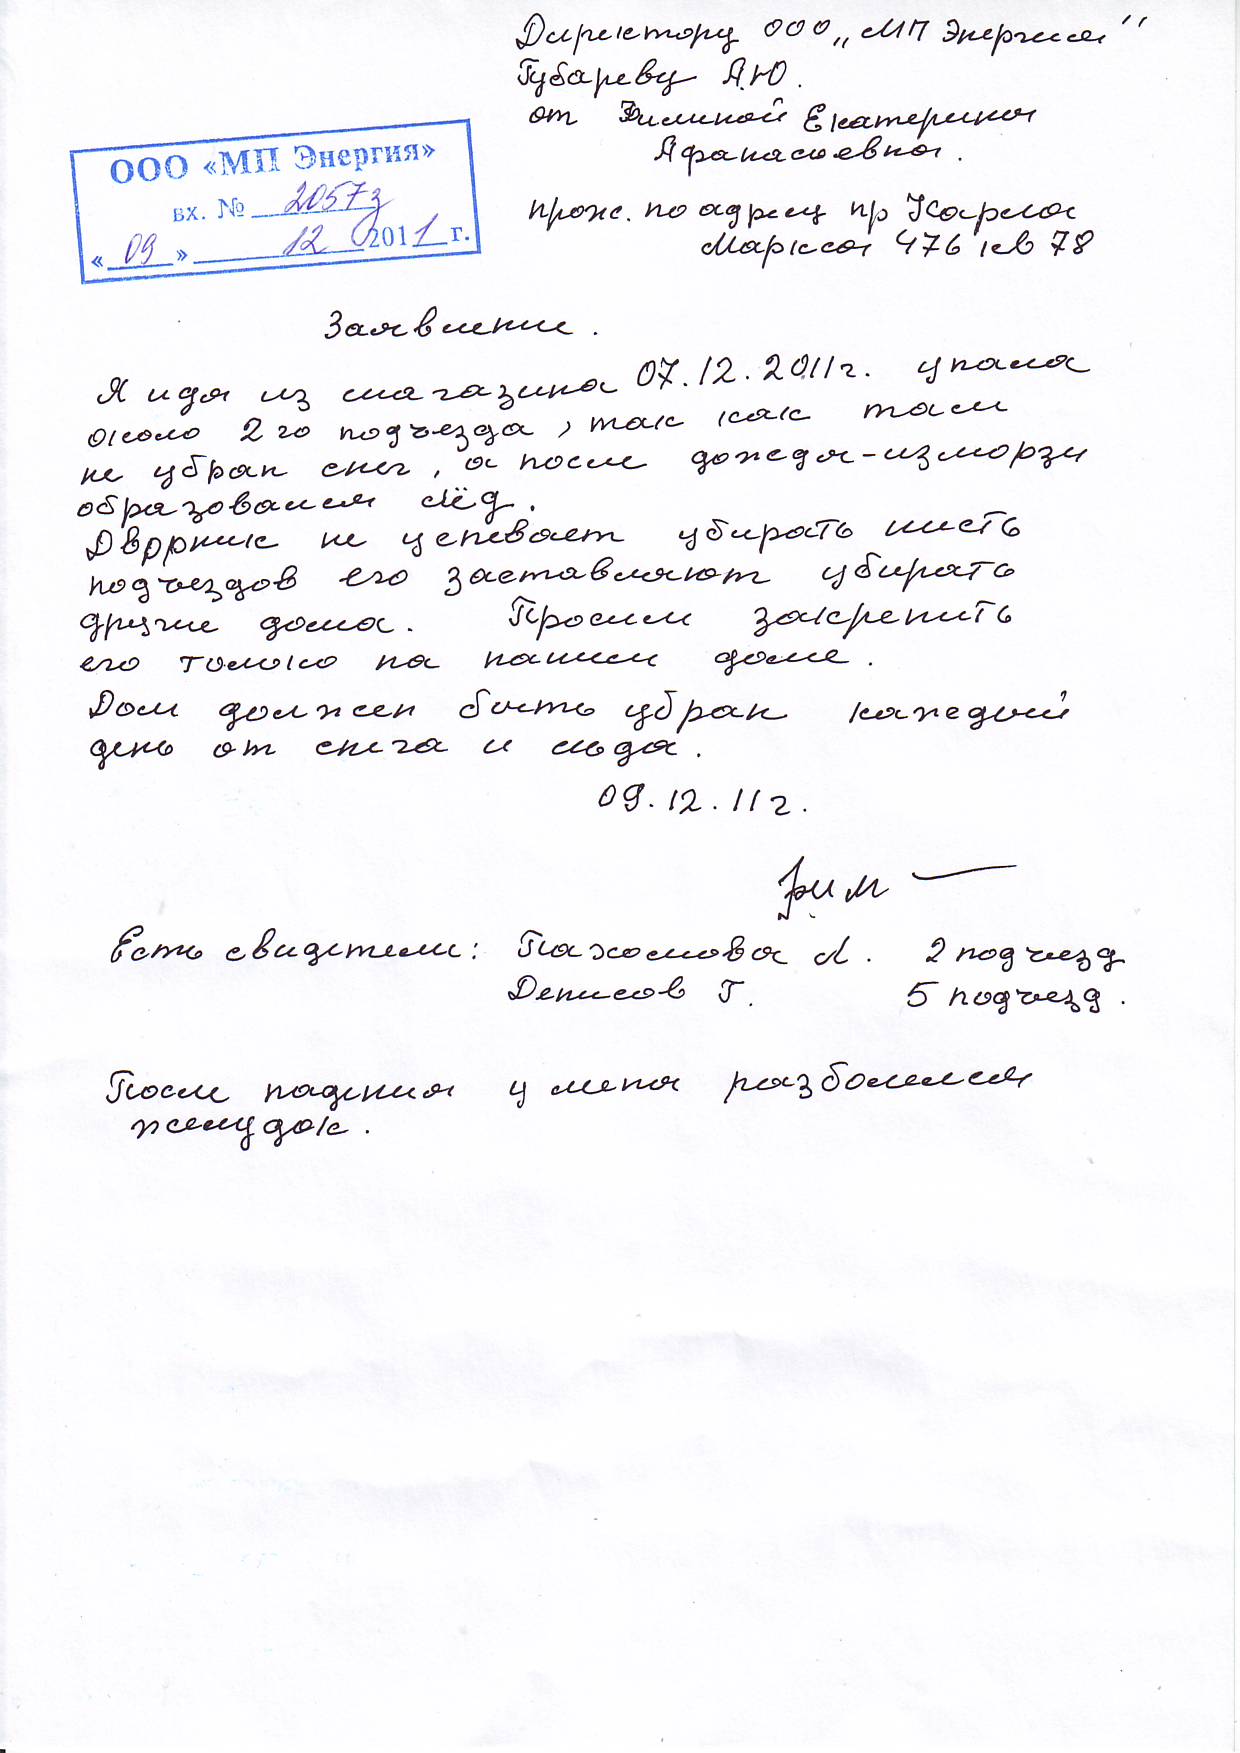 Директору ООО „МП Энергия"
Губареву А.Ю.
от Филиной Екатерины
Афанасьевны.
прож. по адресу пр Карла
Маркса 476 кв 78
ООО «МП Энергия»
вх. № 2057з
« 09 » 12 2011 г.
Заявление.
Я идя из магазина 07.12.2011г. упала
около 2го подъезда, так как там
не убран снег, а после дождя-изморзи
образовался лёд.
Дворник не успевает убирать шесть
подъездов его заставляют убирать
другие дома. Просим закрепить
его только на нашем доме.
Дом должен быть убран каждый
день от снега и льда.
09.12.11г.
Есть свидетели: Пахомова Л. 2 подъезд
Денисов Г. 5 подъезд.
После падения у меня разболелся
желудок.